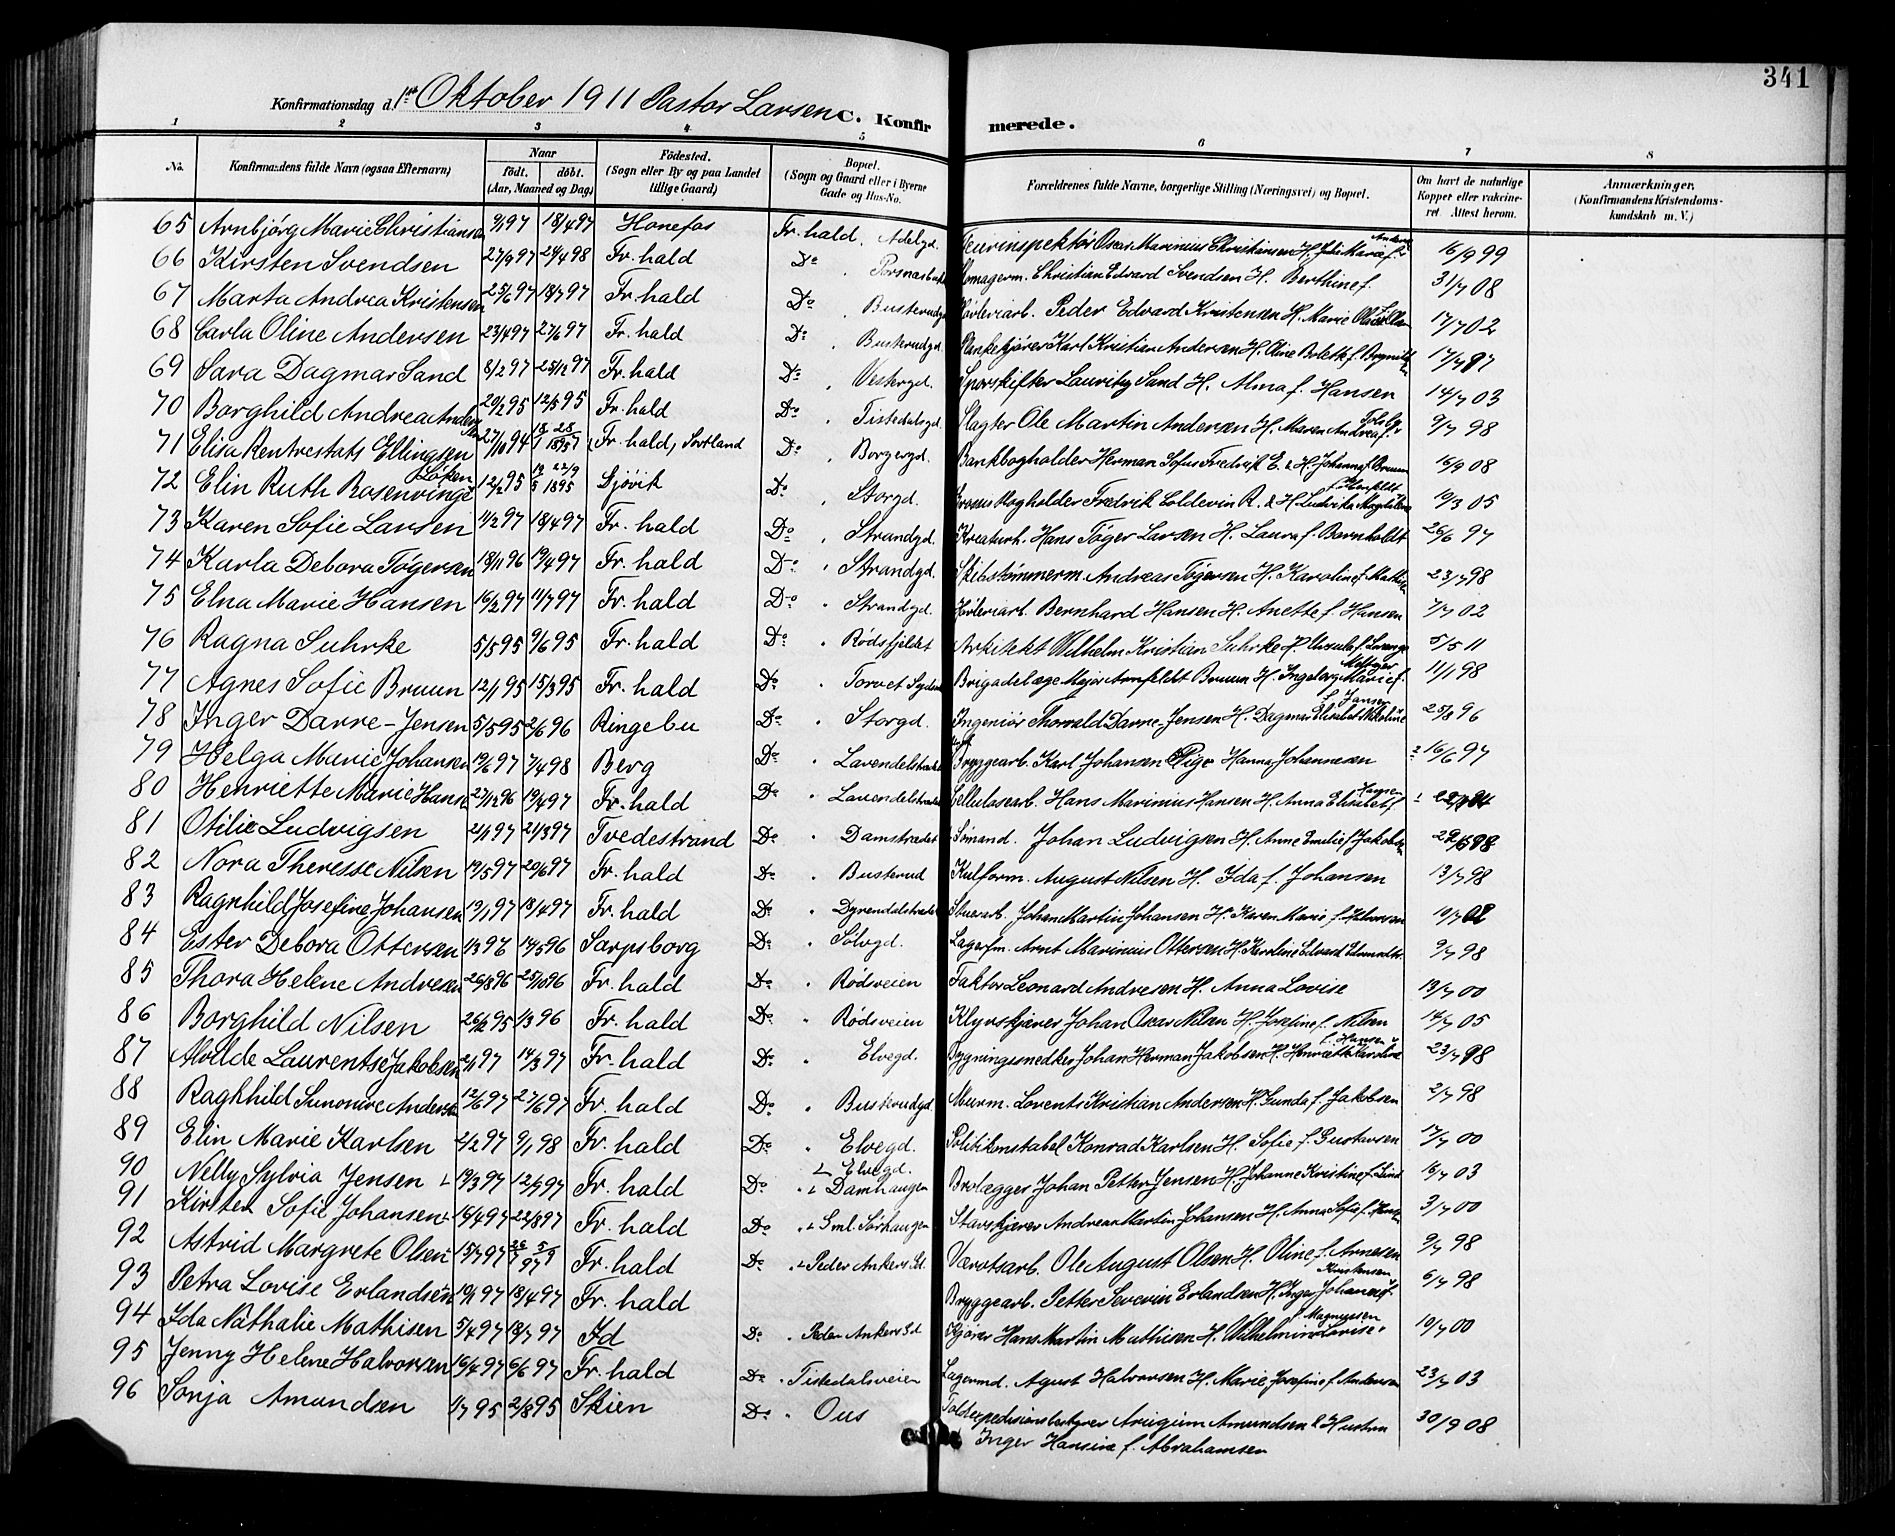 341
Konfirmationsdag d. 1ste Oktober 1911 Pastor Larsen C. Konfirmerede.
1 2 3 4 5 6 7 8
No. Konfirmandens fulde Navn (ogsaa Efternavn) Naar födt. döbt. (Aar, Maaned og Dag) Födested. (Sogn eller By og paa Landet tillige Gaard) Bopæl. (Sogn og Gaard eller i Byerne Gade og Hus-No. Forældrenes fulde Navne, borgerlige Stilling (Næringsvei) og Bopæl. Om havt de naturlige Kopper eller vakcineret. Attest herom. Anmærkninger. (Konfirmandens Kristendomskundskab m. V.)
65 Arnbjørg Marie Christiansen 9/1 97 18/4 97 Honefos Fr. hald, Adelgd. Oscar Marinius Christiansen H. Julie Marie f. 16/9 99
66 Kirsten Svendsen 27/9 97 24/4 98 Fr. hald Do Christian Edvard Svendsen H. Berthine f. 31/7 08
67 Marta Andrea Kristensen 25/6 97 18/7 97 Fr. hald Do Busterudgd. Høvleriarb. Peder Edvard Kristensen H. Marie 17/7 02
68 Carla Oline Andersen 23/4 97 27/6 97 Fr. hald Do Busterudgd. Plankekjører Karl Kristian Andersen H. Oline Bolette f. 17/7 87
69 Sara Dagmar Sand 8/2 97 25/12 97 Fr. hald Do Vestergd. Sporskifter Lauritz Sand H. Alma f. Hansen 14/7 03
70 Borghild Andrea Andersen 20/2 95 12/5 95 Fr. hald Do Tistedalsgd. Slagter Ole Martin Andersen H. Maren Andrea f. 9/7 98
71 Elisa Rentrestats Ellingsen 27/10 94 Fr. hald, Sortland Do Borgergd. Bankbogholder Herman Sofus Fredrik E. & H. Johanna f. Bruun 16/9 08
72 Elin Ruth Løken Rosenvinge 12/2 95 Gjøvik Do Storgd. Bogholder Fredrik Coldevin R. & H. Ludvika Magdalena 10/3 05
73 Karen Sofie Larsen 11/2 97 18/4 97 Fr. hald Do Strandgd. Kreaturh. Hans Töger Larsen H. Laura f. Bernholdt 26/6 97
74 Karla Debora Tögersen 18/11 96 19/4 97 Fr. hald Do Strandgd. Skibstömmerm. Andreas Tögersen H. Karoline f. 23/7 98
75 Elna Marie Hansen 16/2 97 11/7 97 Fr. hald Do Strandgd. Høvleriarb. Bernhard Hansen H. Anette f. Hansen 7/7 02
76 Ragna Suhrke 5/5 95 9/6 95 Fr. hald Do Rødsfjeldet Arkitekt Wilhelm Kristian Suhrke H. Ursula f. 5/5 11
77 Agnes Sofie Bruun 12/1 95 15/3 95 Fr. hald Do Torvet Brigadelæge Major Arnfeldt Bruun H. Ingeborg Marie f. 11/1 98
78 Inger Darre-Jensen 5/5 95 2/6 96 Ringebu Do Storgd. Ingeniör Thorvald Darre-Jensen H. Dagmar Elisabet Nikoline f. Jansen 25/8 96
79 Helga Marie Johansen 19/6 97 7/4 98 Berg Do Lavendelstrædet Bryggearb. Karl Johansen Pige Hanna Johannesen 16/6 97
80 Henriette Marie Hansen 27/12 96 19/4 97 Fr. hald Do Lavendelstrædet Cellulosearb. Hans Marinius Hansen H. Anna Elisabet f. Hansen
81 Otilie Ludvigsen 2/1 97 21/3 97 Tvedestrand Do Damstrædet Sømand. Johan Ludvigsen H. Anne Emilie f. Jakobsen
82 Nora Theresse Nilsen 19/5 97 20/6 97 Fr. hald Do Busterud Kulform. August Nilsen H. Ida f. Johansen 13/7 98
83 Ragnhild Josefine Johansen 19/1 97 18/4 97 Fr. hald Do Dyrendalstrædet Stuerarb. Johan Martin Johansen H. Karen Marie f. Halvorsen 10/7 02
84 Ester Debora Ottersen 1/3 96 14/5 96 Sarpsborg Do Sølvgd. Lagerfm. Arnt Marinius Ottersen H. Karoline 9/7 98
85 Thora Helene Andresen 26/8 96 25/10 96 Fr. hald Do Rødsveien Faktor Leonard Andresen H. Anna Lovise 13/7 00
86 Borghild Nilsen 26/12 95 1/3 96 Fr. hald Do Rødsveien Johan Oscar Nilsen H. Josefine f. Nilsen 14/7 05
87 Alvilde Laurentse Jakobsen 2/1 97 14/3 97 Fr. hald Do Elvegd. Bygningssnedker Johan Herman Jakobsen H. Henriette Karoline f. Hansen 23/7 98
88 Ragnhild Simonine Andersen 12/6 97 27/6 97 Fr. hald Do Busterudgd. Murm. Lorents Kristian Andersen H. Gunda f. Jakobsen 2/7 98
89 Elin Marie Karlsen 2/2 97 9/1 98 Fr. hald Do Elvegd. Politikonstabel Konrad Karlsen H. Sofie f. Gustavsen 17/7 00
90 Nelly Sylvia Jensen 19/3 97 12/7 97 Fr. hald Do Elvegd. Damhaugen Brolægger Johan Petter Jensen H. Johanne Kristine f. Lund 16/7 03
91 Kirsten Sofie Johansen 16/4 97 22/8 97 Fr. hald Do Gml. Sørhaugen Stavskjærer Andreas Martin Johansen H. Anna Sofie f. 3/7 00
92 Astrid Margrete Olsen 15/7 97 Fr. hald Do Peder Ankers Gd. Værftsarb. Ole August Olsen H. Oline f. Arnesen 9/7 98
93 Petra Lovise Erlandsen 19/1 97 18/4 97 Fr. hald Bryggearb. Petter Severin Erlandsen H. Inger Johanne f. Kristensen 6/7 98
94 Ida Nathalie Mathisen 5/4 97 18/7 97 Id Do Peder Ankers Gd Kjører Hans Martin Mathisen H. Wilhelmine Lovise f. Magnussen 10/7 00
95 Jenny Helene Halvorsen 16/4 97 6/6 97 Fr. hald Do Tistedalsveien Lagermd. Agust Halvorsen H. Marie Josefine f. Andersen 23/7 03
96 Sonja Amundsen 1/7 95 2/8 95 Skien Do Ous Toldexpedisionsbestyrer Amundsen & Hustru 30/9 08
Inger Hansine f. Abrahamsen